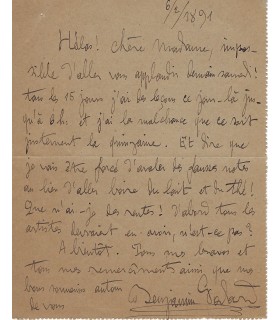 6/2/1891
Hélas! chère Madame, impos-
sible d'aller vous applaudir demain samedi!
tous les 15 jours j'ai des leçons ce jour-là jus-
qu'à 6h. et j'ai la malchance que ce soit
justement la quinzaine. Et dire que
je vais être forcé d'avaler des fausses notes
au lieu d'aller boire du lait et du thé!
Que n'ai-je des rentes! D'abord tous les
artistes devraient en avoir, n'est-ce pas?
A bientôt. Tous mes bravos et
tous mes remerciements ainsi que
bons souvenirs autour
de vous
Benjamin Godard